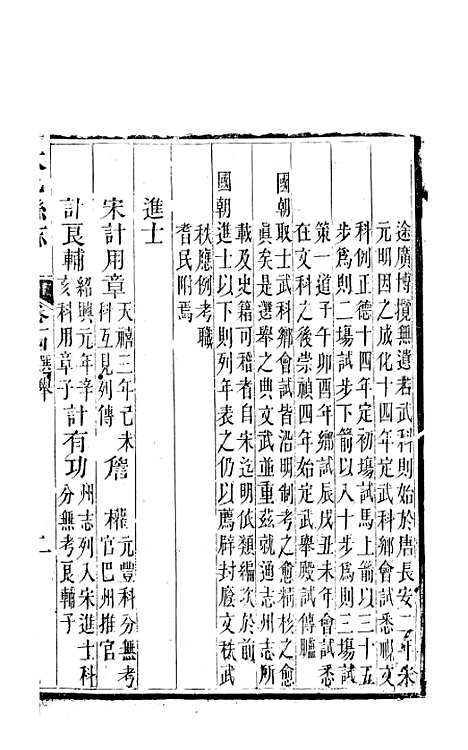 途廣博攬無遺若武科則始於唐長安二年宋
元明因之成化十四年定武科鄉會試悉視文
科例正德十四年定初塲試馬上箭以三十五
步爲則二塲試步下箭以八十步爲則三塲試
策一道子午卯酉年鄉試辰戌丑未年會試悉
在文科之後崇禎四年始定武舉殿試傳臚
國朝取士武科鄉會試皆沿明制考之愈精核之愈
眞矣是選舉之典文武並重茲就通志州志所
載及史籍可稽者自宋迄明依類編次於前
國朝進士以下則列年表之仍以薦辟封廕文秩武
秩應例考職
耆民附焉
進士
宋計用章 天禧三年己未科互見列傳 詹權 元豐科分無考官巴州推官
計良輔 紹興元年辛亥科用章子 計有功 州志列入宋進士科分無考良輔子
卷十四 選舉 二